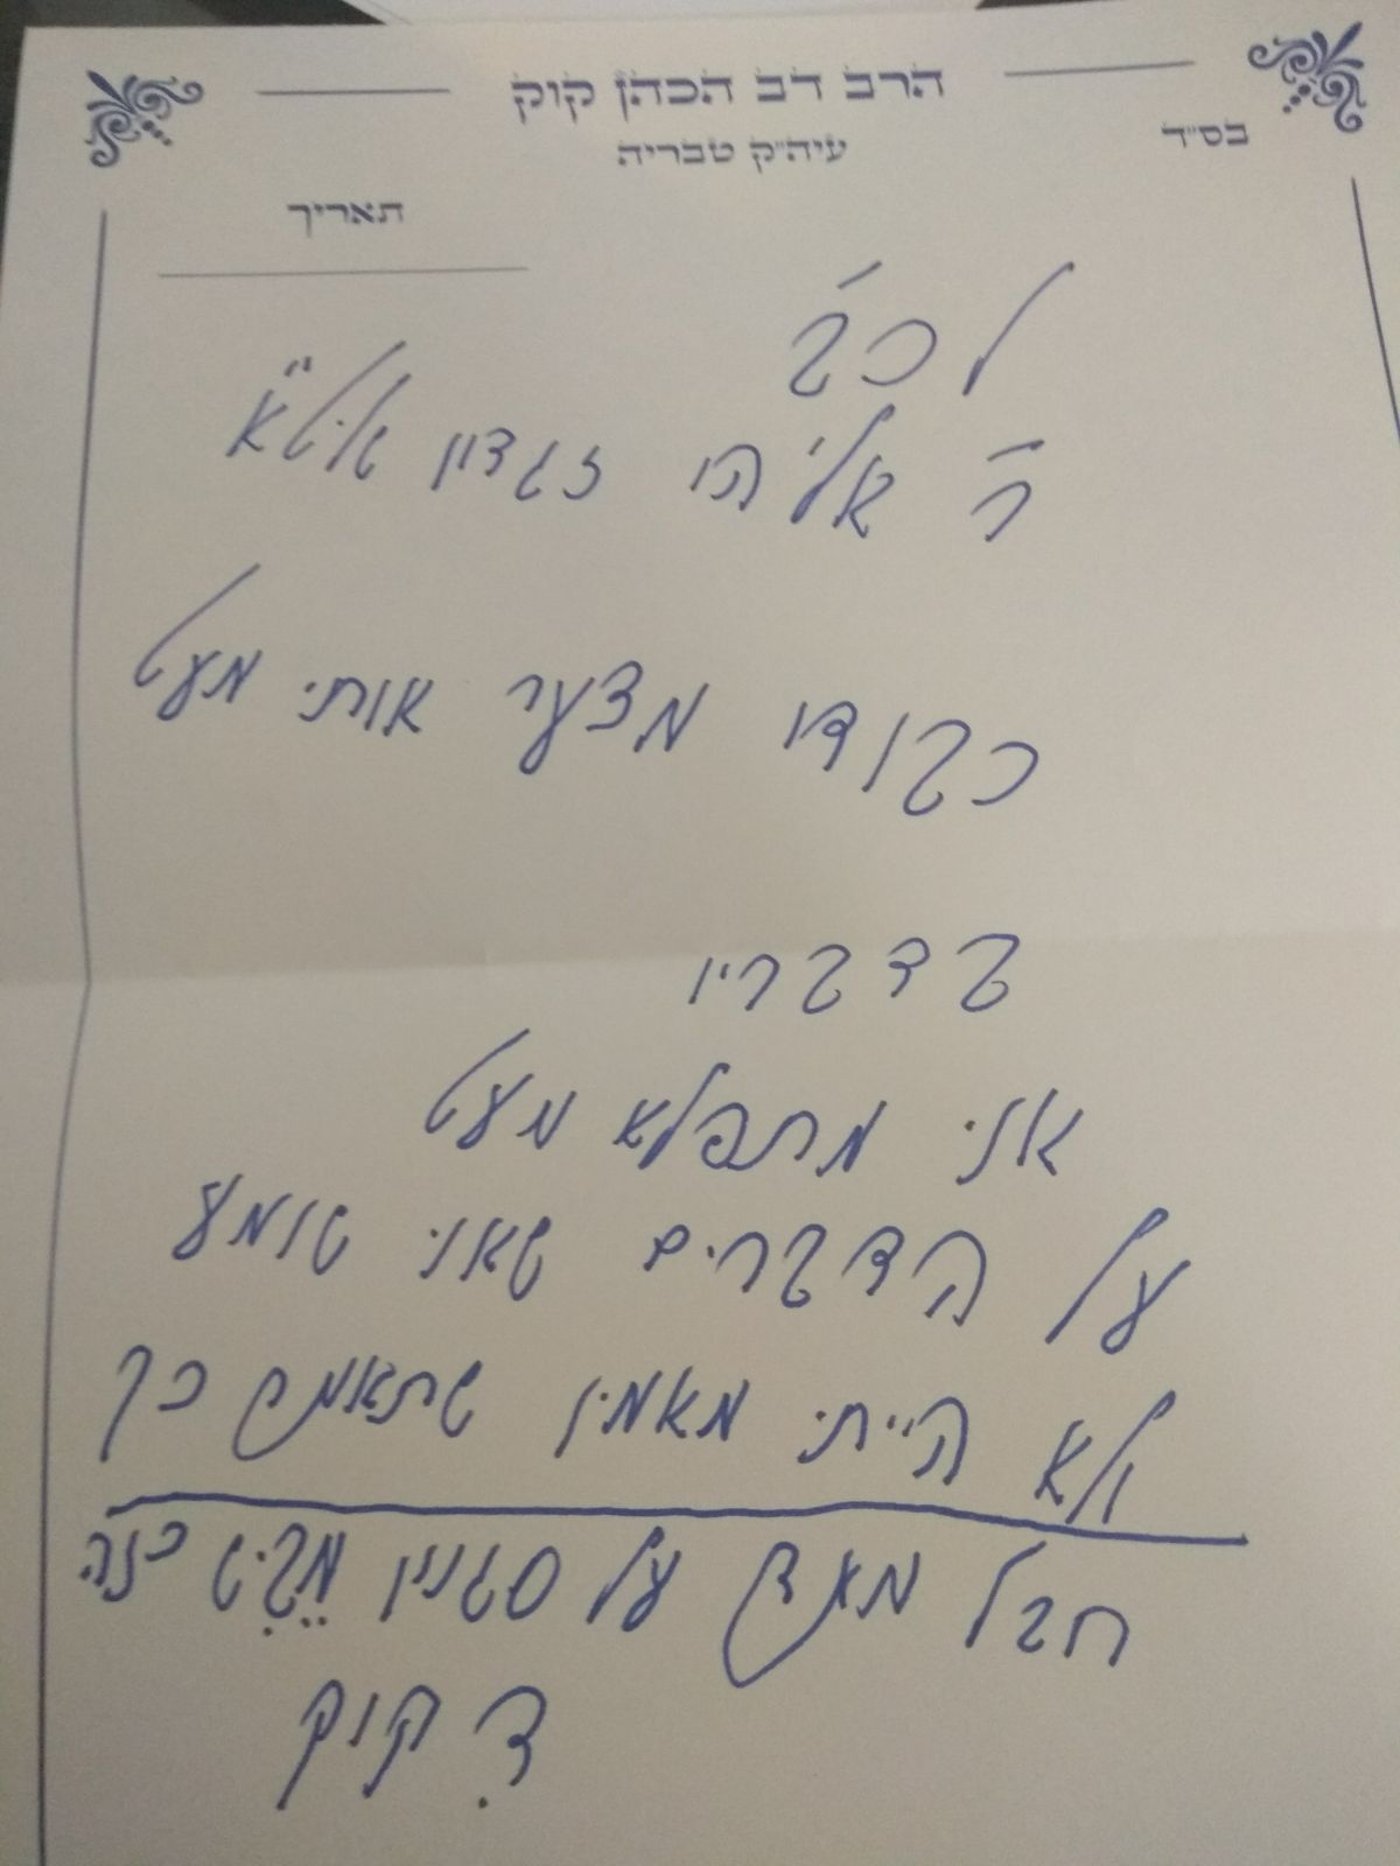 בס"ד
הרב דב הכהן קוק
עיה"ק טבריה
תאריך
לכב'
ר' אליהו זגדון שליט"א
כבודו מצער אותי מעט
בדבריו
אני מתפלא מעט
על הדברים שאני שומע
ולא הייתי מאמין שתאמר כך
חבל מאד על סגנון מביש כזה
ד. קוק